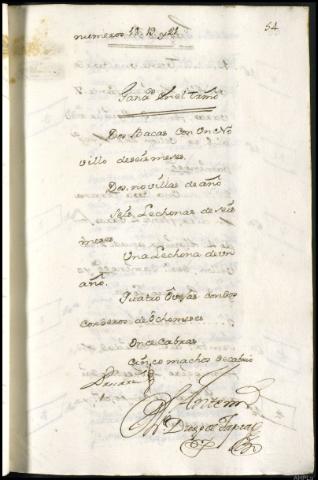 54
numeros 18. 19 y 21
Ganado En el term.o
Dos Bacas con Un No
villo de seis meses.
Dos novillas de año
Seis Lechonas de seis
meses
Una Lechona de un
año.
Quatro Ovejas con dos
corderos de 8 chomeses
Once cabras
Cinco machos de cabrio
Antemi
Diego de Tapia